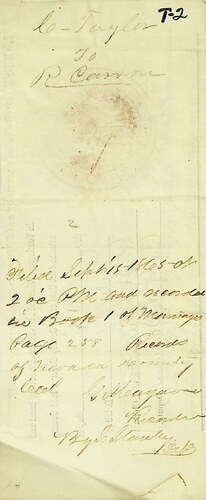 T-2
C- Taylor
To
R Carson
2
Filed Sept 15 1865 at
2 oc PM and recorded
in Book 1 of
Page 258 Records
of Nevada County
Cal
Recorder
By Stanley